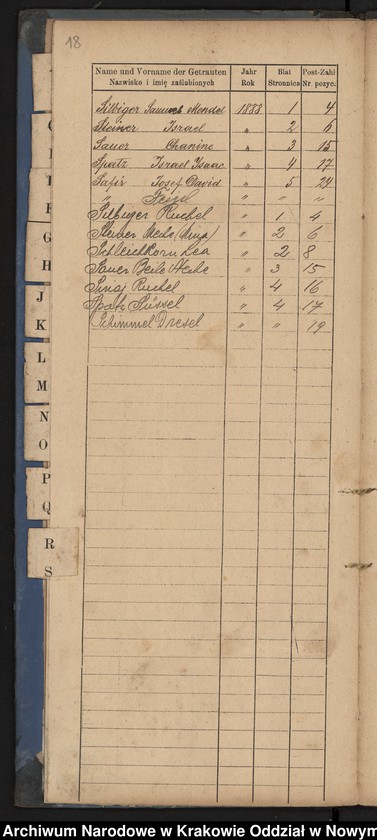 18
Name und Vorname der Getrauten Jahr Blat Post-Zahl
Nazwisko i imię zaślubionych Rok Stronnica Nr. pozyc.
Silbiger Samuel Mendel 1888 1 4
Steiner Israel " 2 6
Sauer Chanine " 3 15
Spatz Israel Isaac " 4 17
Safir Josef David " 5 24
" Feigel " " "
Silbiger Ruchel " 1 4
Steiner " 2 6
Schleichkorn Lea " 2 8
Sauer Beile " 3 15
Ruchel " 4 16
Spatz " 4 17
Schimmel Dresel " " 19
G
H
J
K
L
M
N
O
P
Q
R
S
Archiwum Narodowe w Krakowie Oddział w Nowym